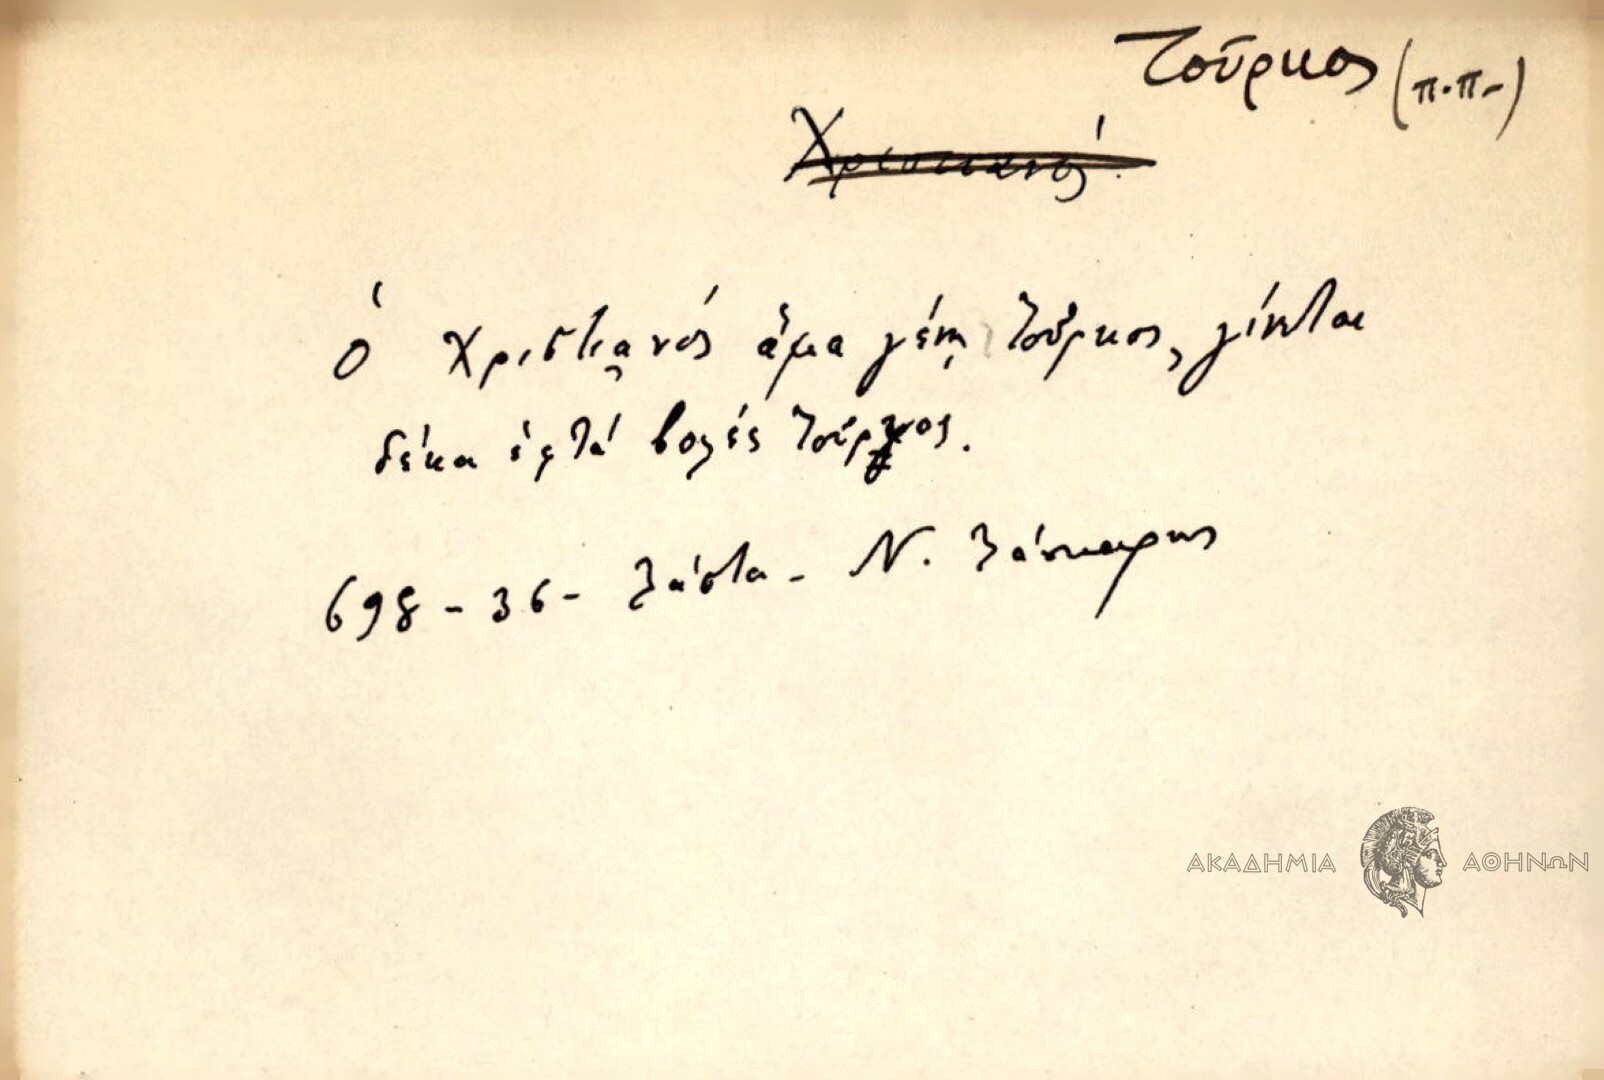 Τοῦρκος (π.π.)
Χριστιανός.
Ὁ Χριστιανός ἅμα γένῃ Τοῦρκος, γίνεται
δέκα ἑφτά βολές Τοῦρκος.
698 - 36 - Λάστα - Ν. Λάσκαρης
ΑΚΑΔΗΜΙΑ ΑΘΗΝΩΝ